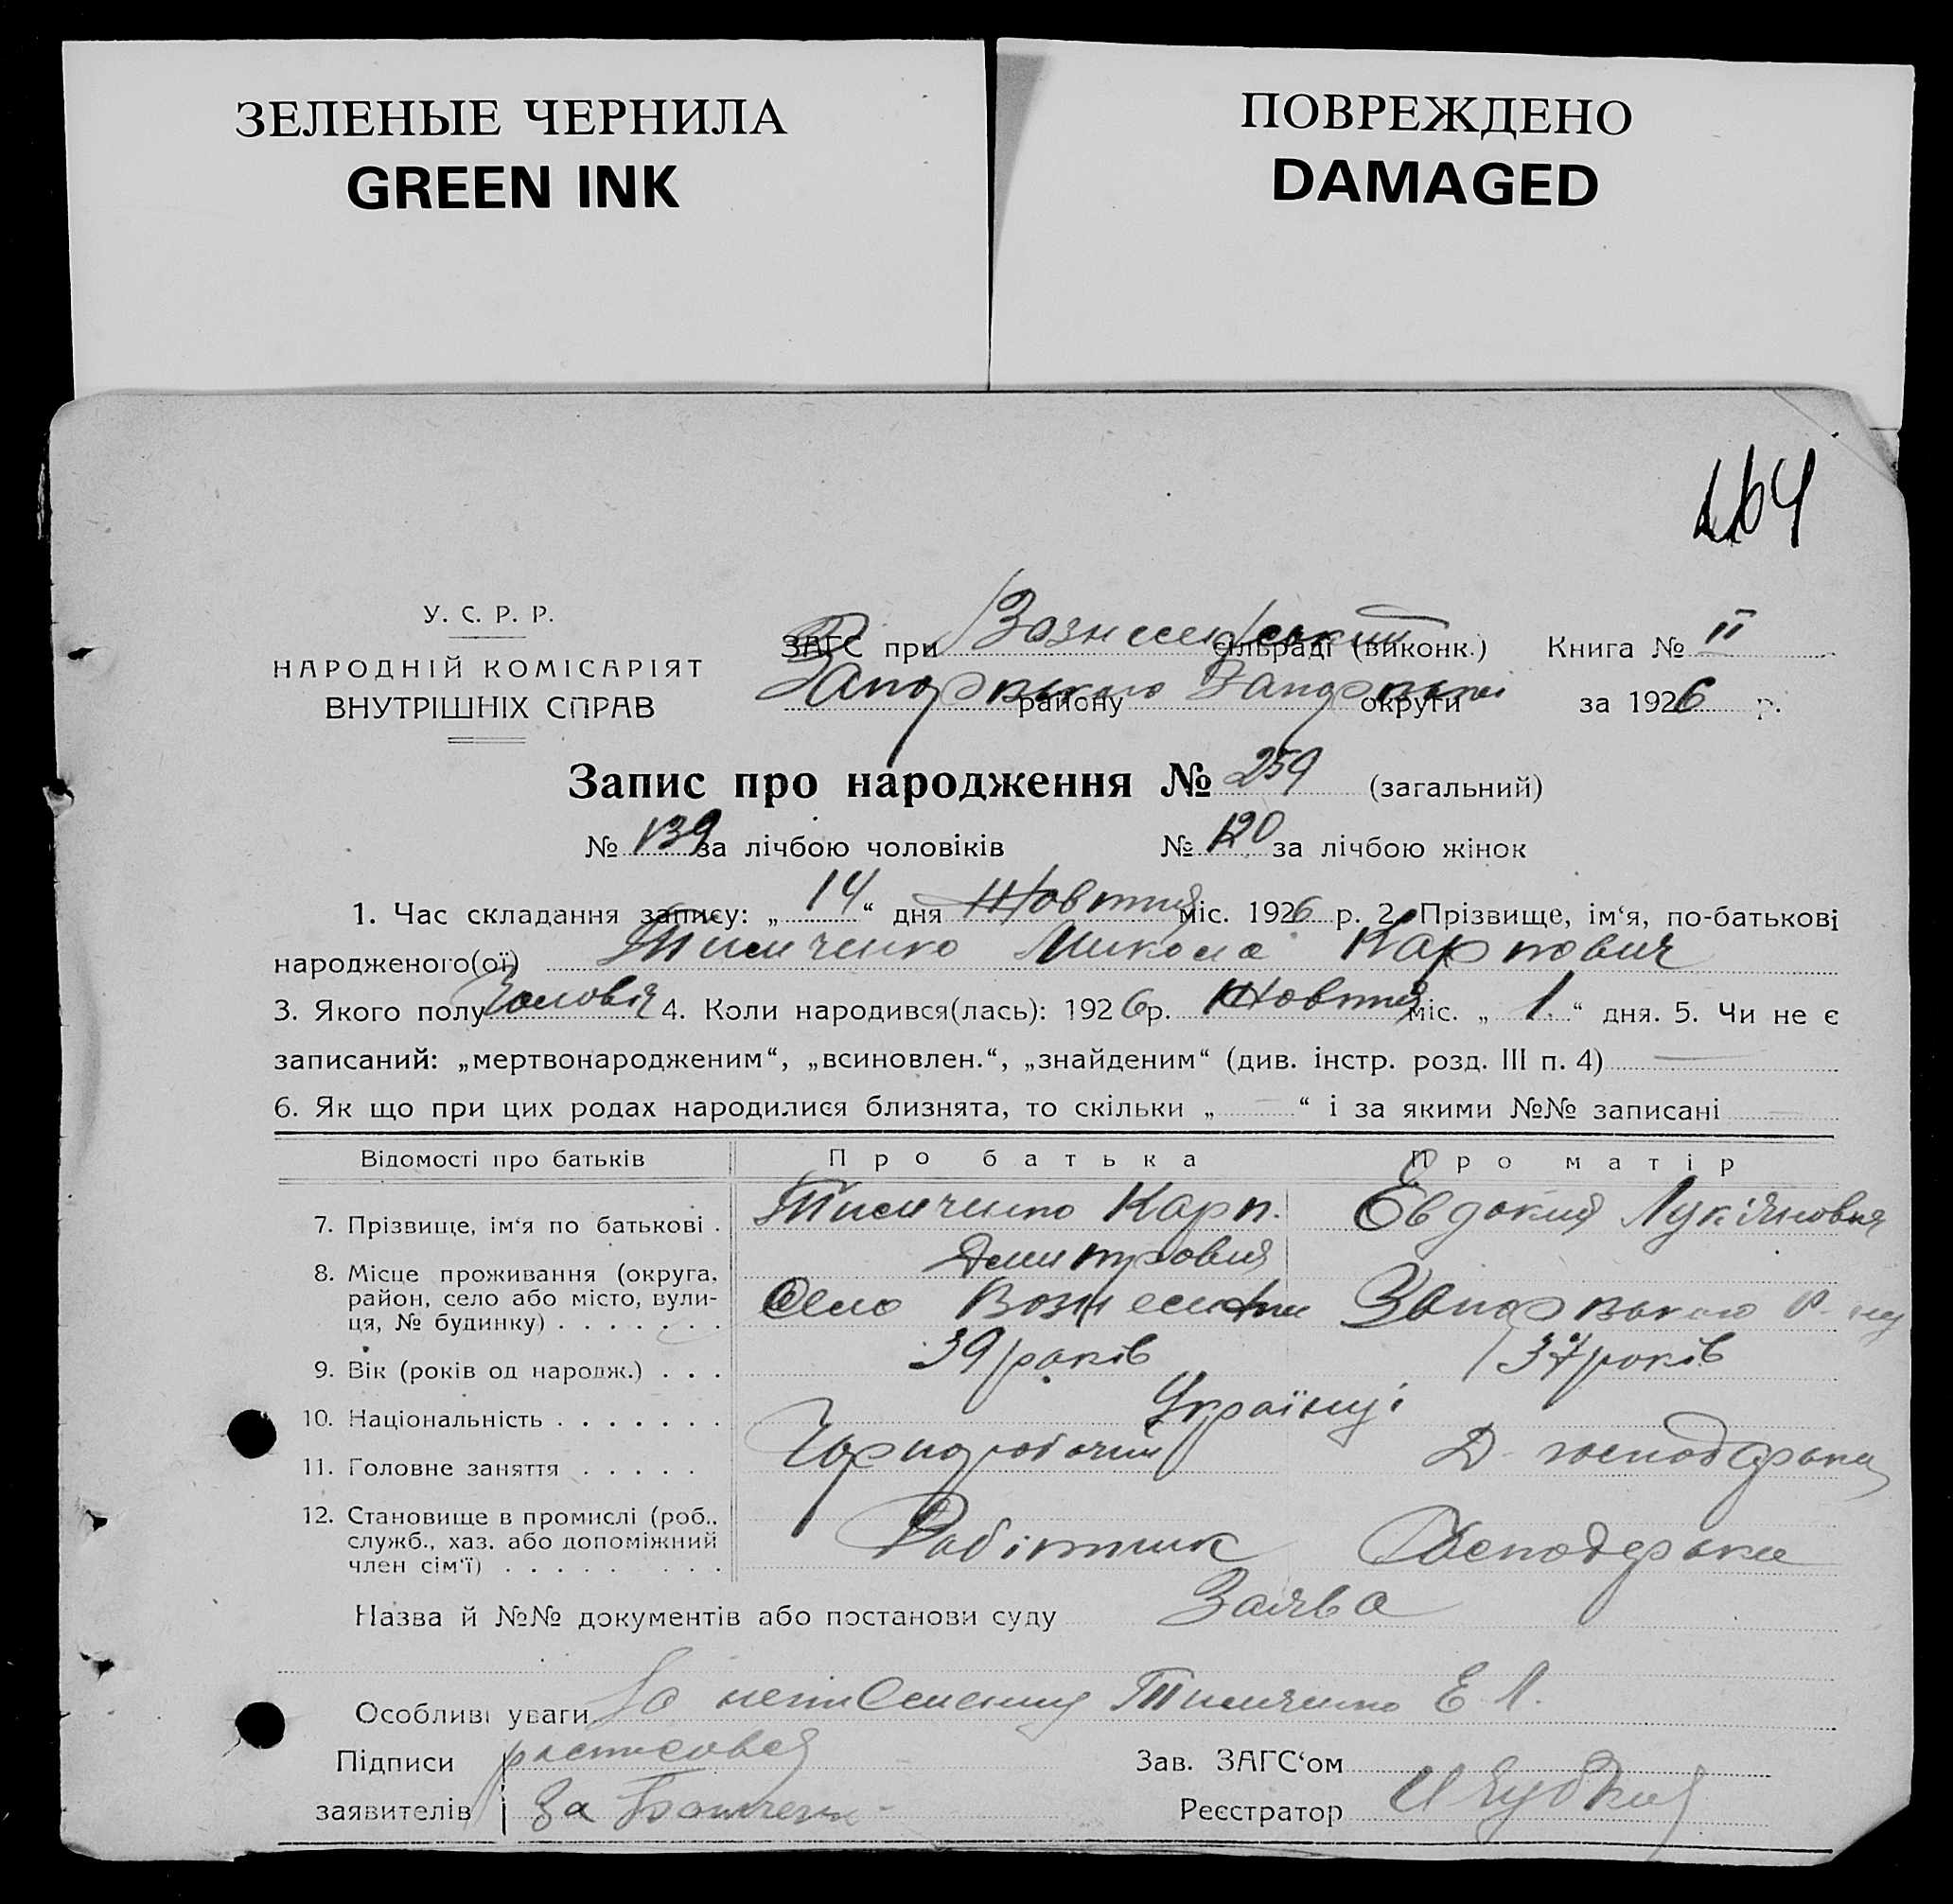 ЗЕЛЕНЫЕ ЧЕРНИЛА
GREEN INK
ПОВРЕЖДЕНО
DAMAGED
У. С. Р. Р.
НАРОДНІЙ КОМІСАРІЯТ
ВНУТРІШНІХ СПРАВ
ЗАГС при сільраді (виконк.) Книга № II
району округи за 1926 р.
Запис про народження № 259 (загальний)
№ 139 за лічбою чоловіків № 120 за лічбою жінок
1. Час складання запису: „ 14 “ дня Жовтня міс. 1926 р. 2. Прізвище, ім‘я, по-батькові
народженого(ої) Тимченко Микола Карпович
3. Якого полу 4. Коли народився(лась): 1926 р. Жовтня міс. „ 1. “ дня. 5. Чи не є
записаний: „мертвонародженим“, „всиновлен.“, „знайденим“ (див. інстр. розд. III п. 4)
6. Як що при цих родах народилися близнята, то скільки „ — “ і за якими №№ записані —
Відомості про батьків Про батька Про матір
7. Прізвище, ім‘я по батькові . Тимченко Карп. Евдокия
8. Місце проживання (округа, район, село або місто, вулиця, № будинку) . . . . . . . Село
9. Вік (років од народж.) . . . 39 років 37 років
10. Національність . . . . . . . Українці
11. Головне заняття . . . . . Чорноробочий Д. господарка
12. Становище в промислі (роб., служб., хаз. або допоміжний член сім‘ї) . . . . . . . . Робітник Господарка
Назва й №№ документів або постанови суду Заява
Особливі уваги За Тимченко Е. Л.
Підписи Зав. ЗАГС‘ом
заявителів За Реєстратор